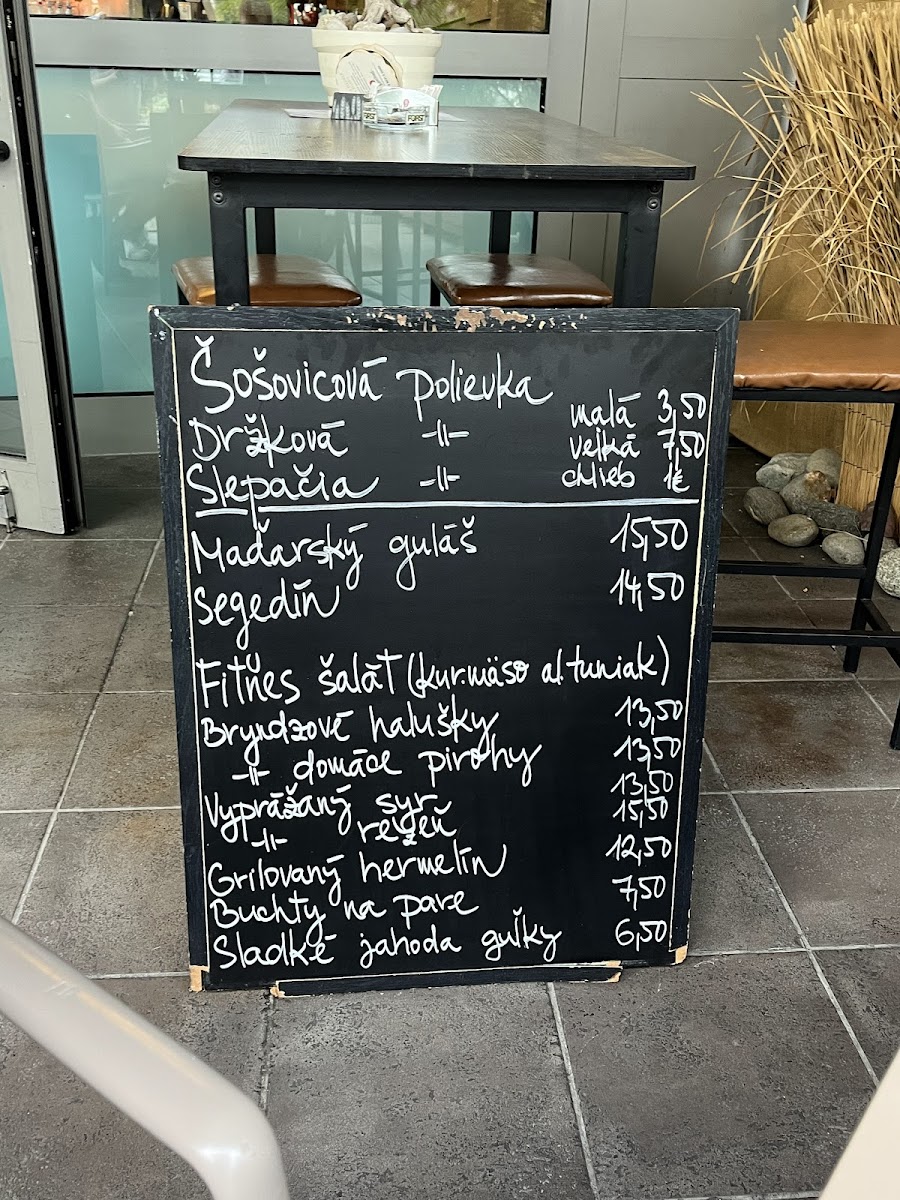 FÜRST FÜRST
Šošovicová polievka
malá 3,50
Držková -||- veľká 7,50
Slepačia -||- chlieb 1€
Maďarský guláš 15,50
Segedín 14,50
Fitňes šalát (kur.mäso al. tuniak)
13,50
Bryndzové halušky 13,50
-||- domáce pirohy 13,50
Vyprážaný syr 15,50
-||- rezeň
Grilovaný hermelín 12,50
Buchty na pare 7,50
Sladké jahoda guľky 6,50